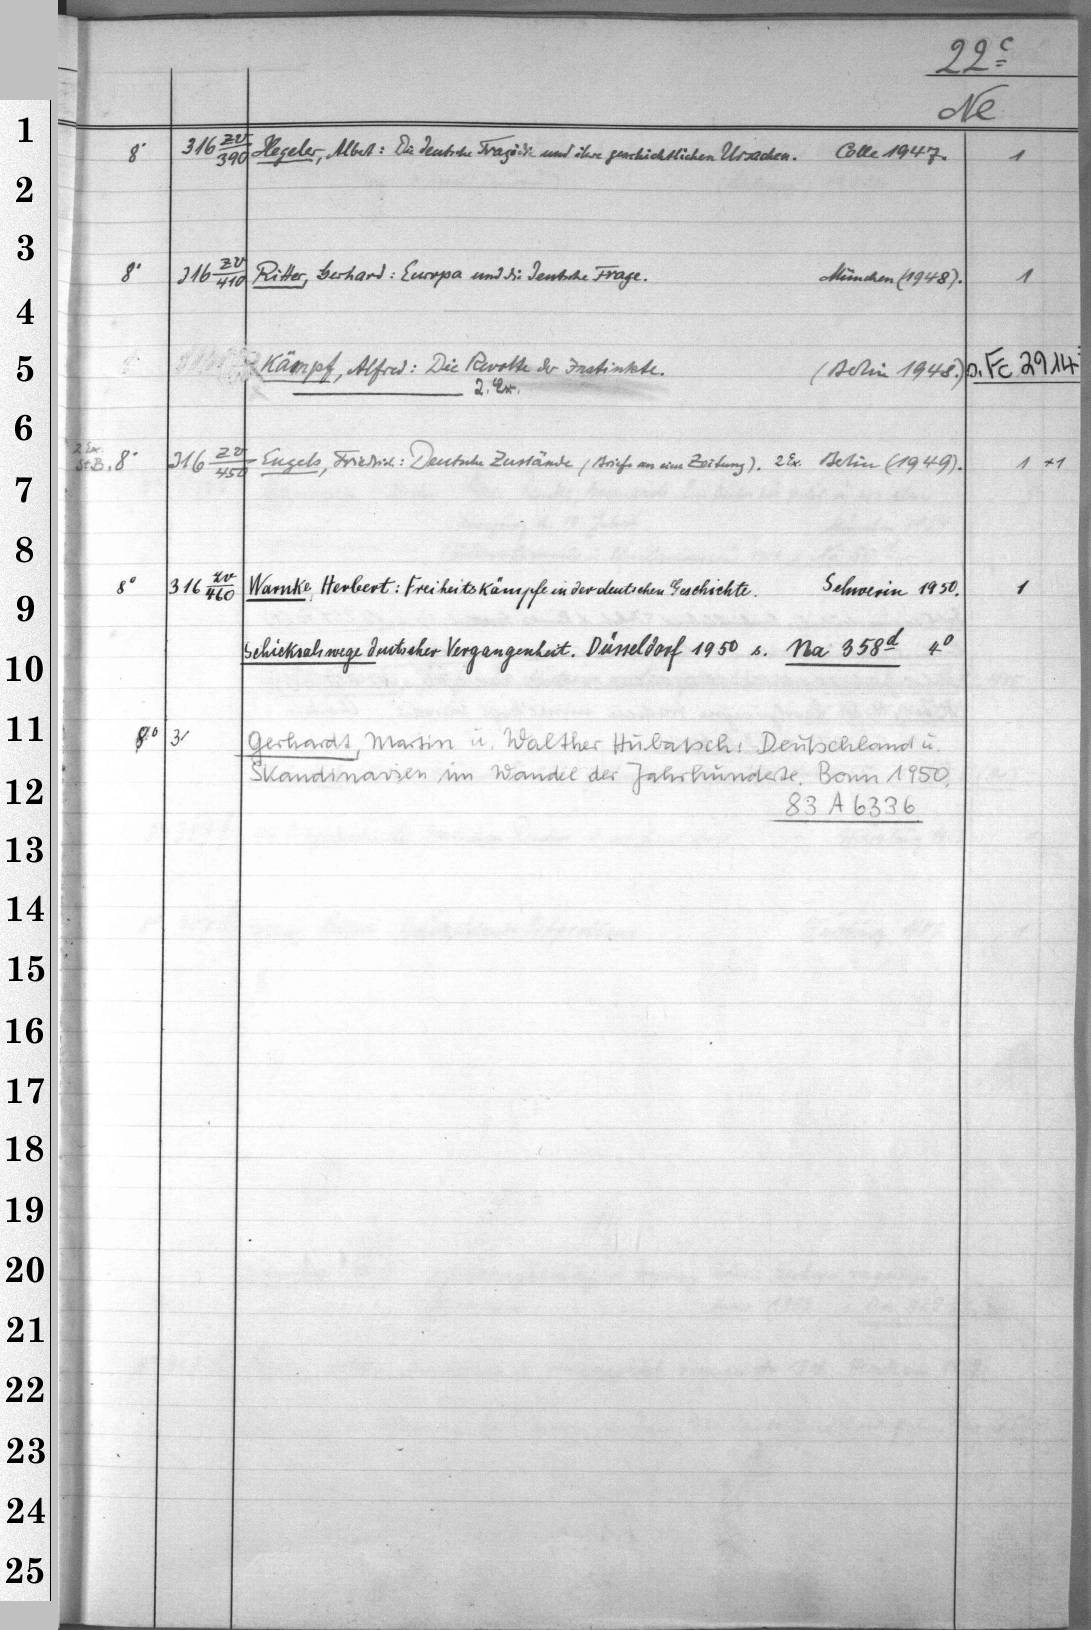 22 c
Ne
1
8° 316 ZV/390 Hegeler, Albert: Die deutsche Tragödie und ihre geschichtlichen Ursachen. Celle 1947. 1
2
3
8° 316 ZV/410 Ritter, Gerhard: Europa und die deutsche Frage. München (1948). 1
4
5 Kämpf, Alfred: Die Revolte der Instinkte. (Berlin 1948.) s. Fc 2914
2. Ex.
6
2 Ex. St.B. 8° 316 ZV/450 Engels, Friedrich: Deutsche Zustände (Briefe an eine Zeitung). 2 Ex. Berlin (1949). 1 +1
7
8
8° 316 ZV/460 Warnke, Herbert: Freiheitskämpfe in der deutschen Geschichte. Schwerin 1950. 1
9
10 Schicksalswege deutscher Vergangenheit. Düsseldorf 1950 s. Na 358 d 4°
11 8° 3 Gerhardt, Martin u. Walther Hubatsch: Deutschland u.
12 Skandinavien im Wandel der Jahrhunderte. Bonn 1950.
83 A 6336
13
14
15
16
17
18
19
20
21
22
23
24
25